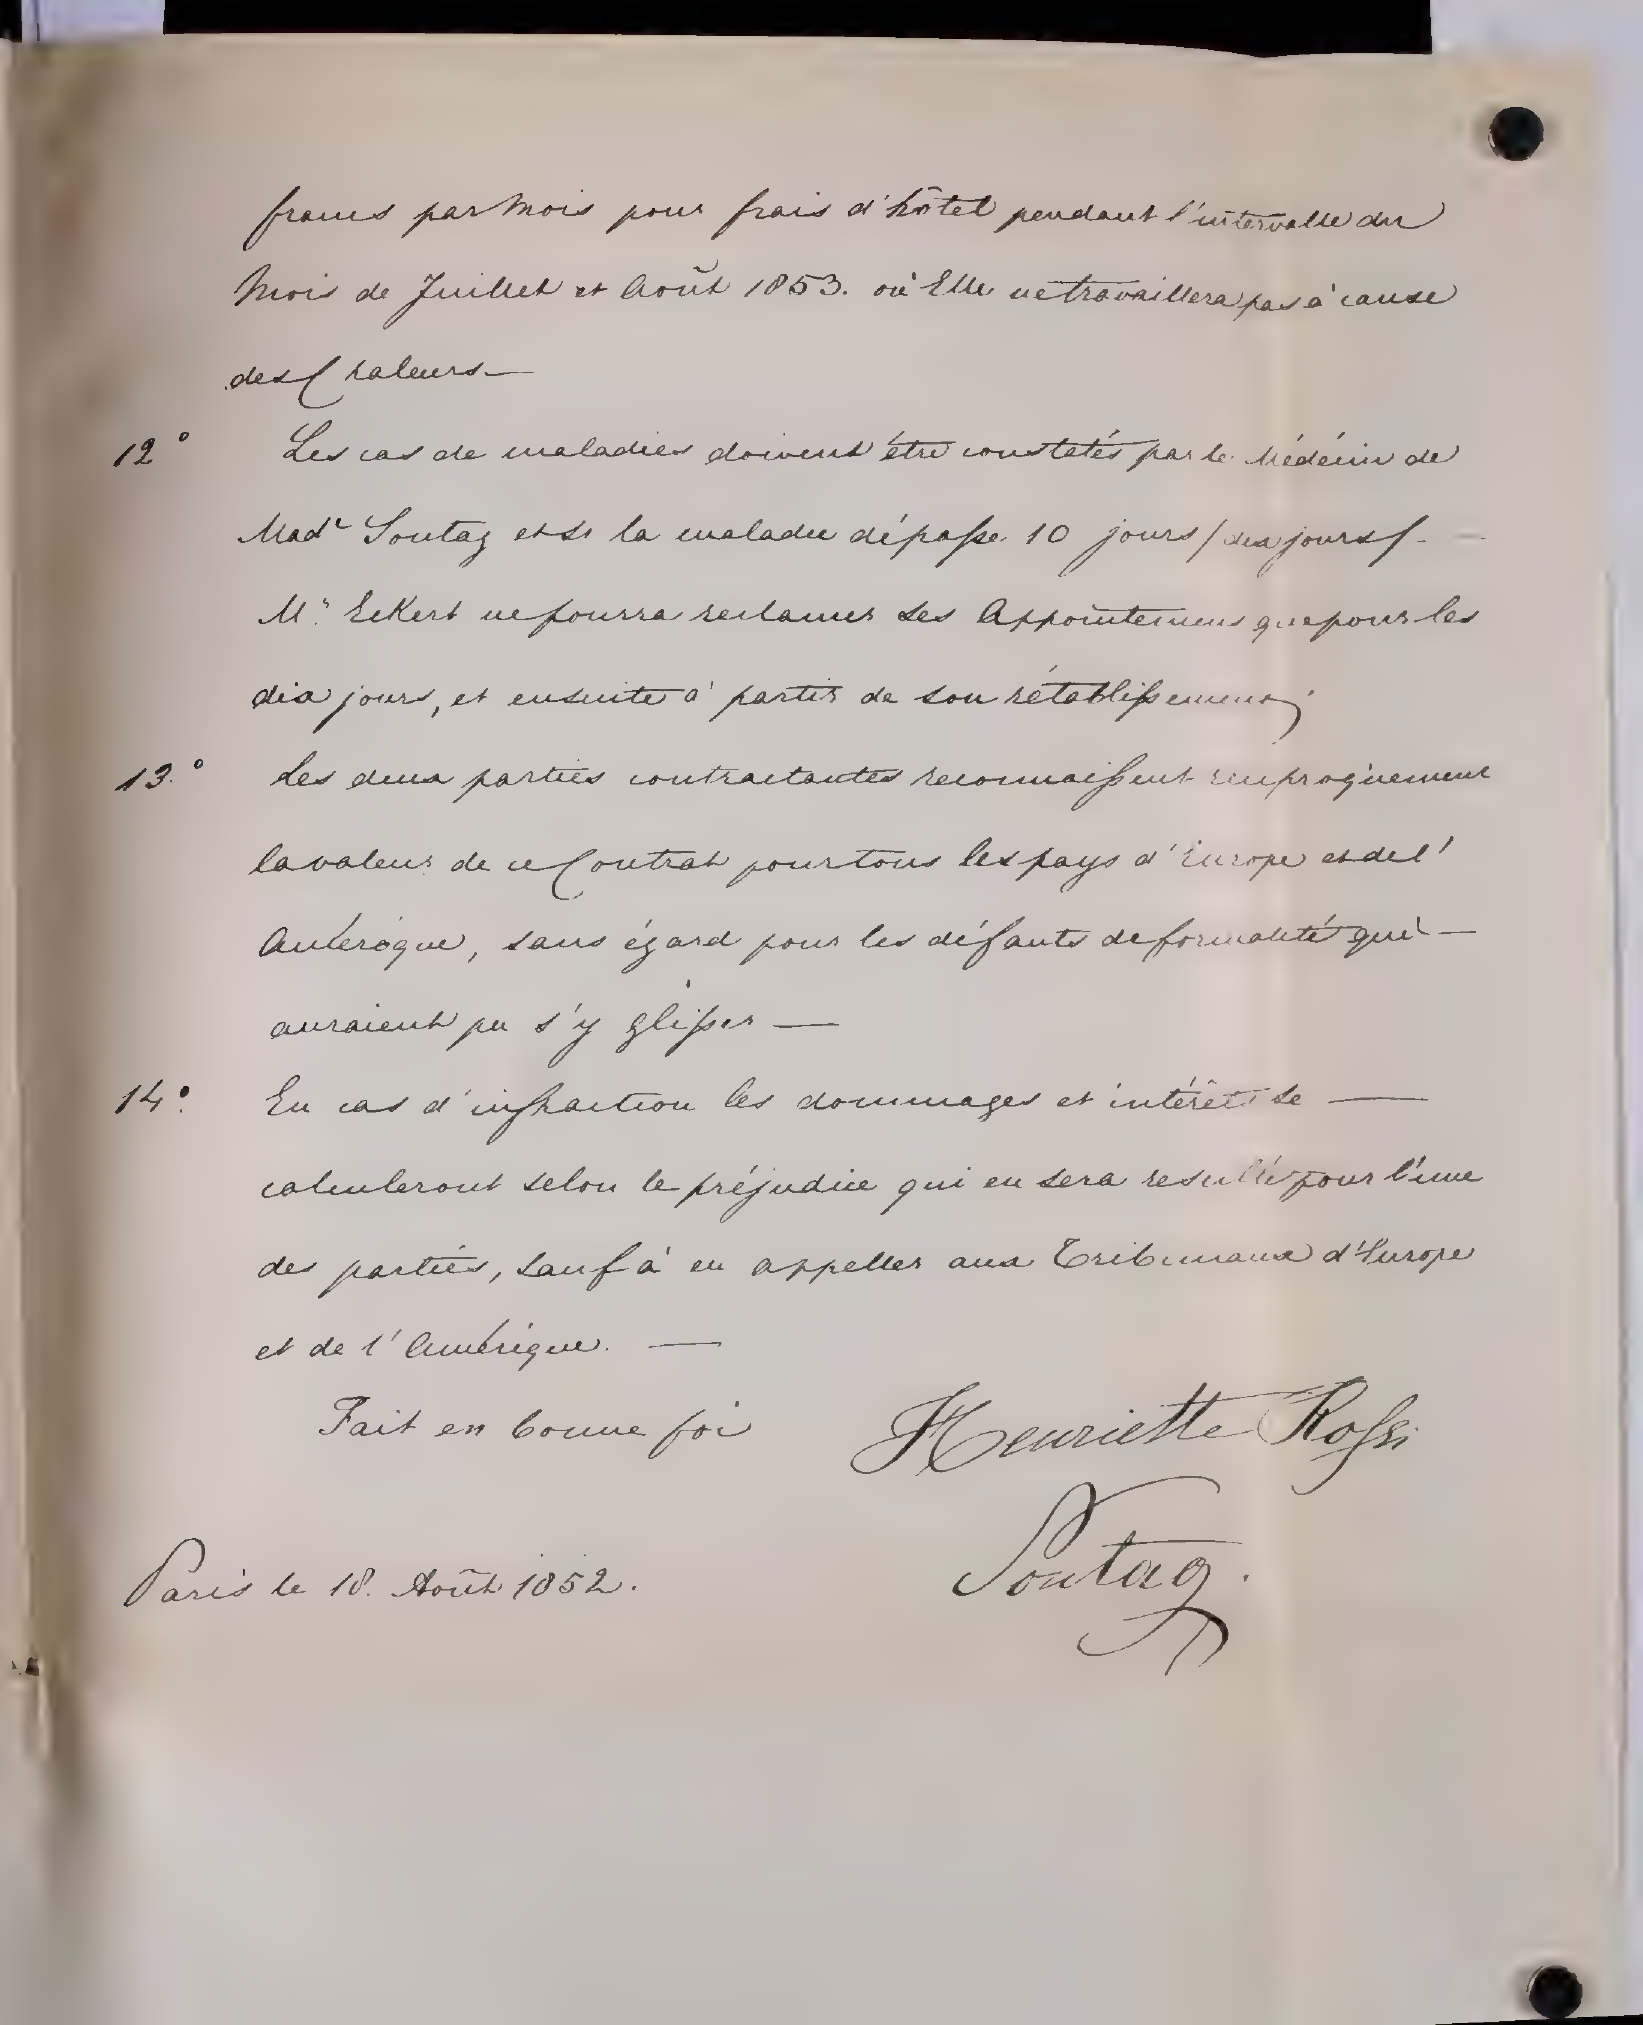 francs par Mois pour frais d'hôtel pendant l'intervalle du
Mois de Juillet et Août 1853. où Elle ne travaillera pas à cause
des Chaleurs —
12° Les cas de maladies doivent être constatés par le Médécin de
Made Sontag et si la maladie dépasse 10 jours / dix jours / —
Mr. Eckert ne pourra reclamer ses Appointemens que pour les
dix jours, et ensuite à partir de son rétablissement;
13.° Les deux parties contractantes reconnaissent reciproquement
la valeur de ce Contrat pour tous les pays d'Europe et de l'
Amérique, sans égard pour les défauts de formalité qui —
auraient pu s'y glisser —
14° En cas d'infraction les dommages et intérêts se —
calculeront selon le préjudice qui en sera resulté pour l'une
des parties, sauf à en appeller aux Tribunaux d'Europe
et de l'Amérique. —
Fait en bonne foi Henriette Rossi
Sontag.
Paris le 18. Août 1852.